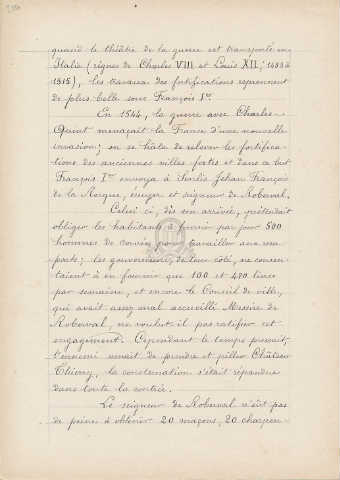 quand le théâtre de la guerre est transporté en
Italie (règnes de Charles VIII et Louis XII, 1483 à
1515), les travaux des fortifications reprennent
de plus belle sous François Ier.
En 1544, la guerre avec Charles-
Quint menaçait la France d'une nouvelle
invasion; on se hâta de relever les fortifica-
tions des anciennes villes fortes et dans ce but
François Ier envoya à Senlis Jehan François
de la Rocque, écuyer et seigneur de Roberval.
Celui ci, dès son arrivée, prétendait
obliger les habitants à fournir par jour 500
hommes de corvée pour travailler aux rem
parts; les gouverneurs, de leur côté, ne consen-
taient à en fournir que 100 et 400 livres
par semaine, et encore le Conseil de ville,
qui avait assez mal accueilli Messire de
Roberval, ne voulut il pas ratifier cet
engagement. Cependant le temps pressait,
l'ennemi venait de prendre et piller Château
Thierry, la consternation s'était répandue
dans toute la contrée.
Le seigneur de Roberval n'eût pas
de peine à obtenir 20 maçons, 20 charpen-